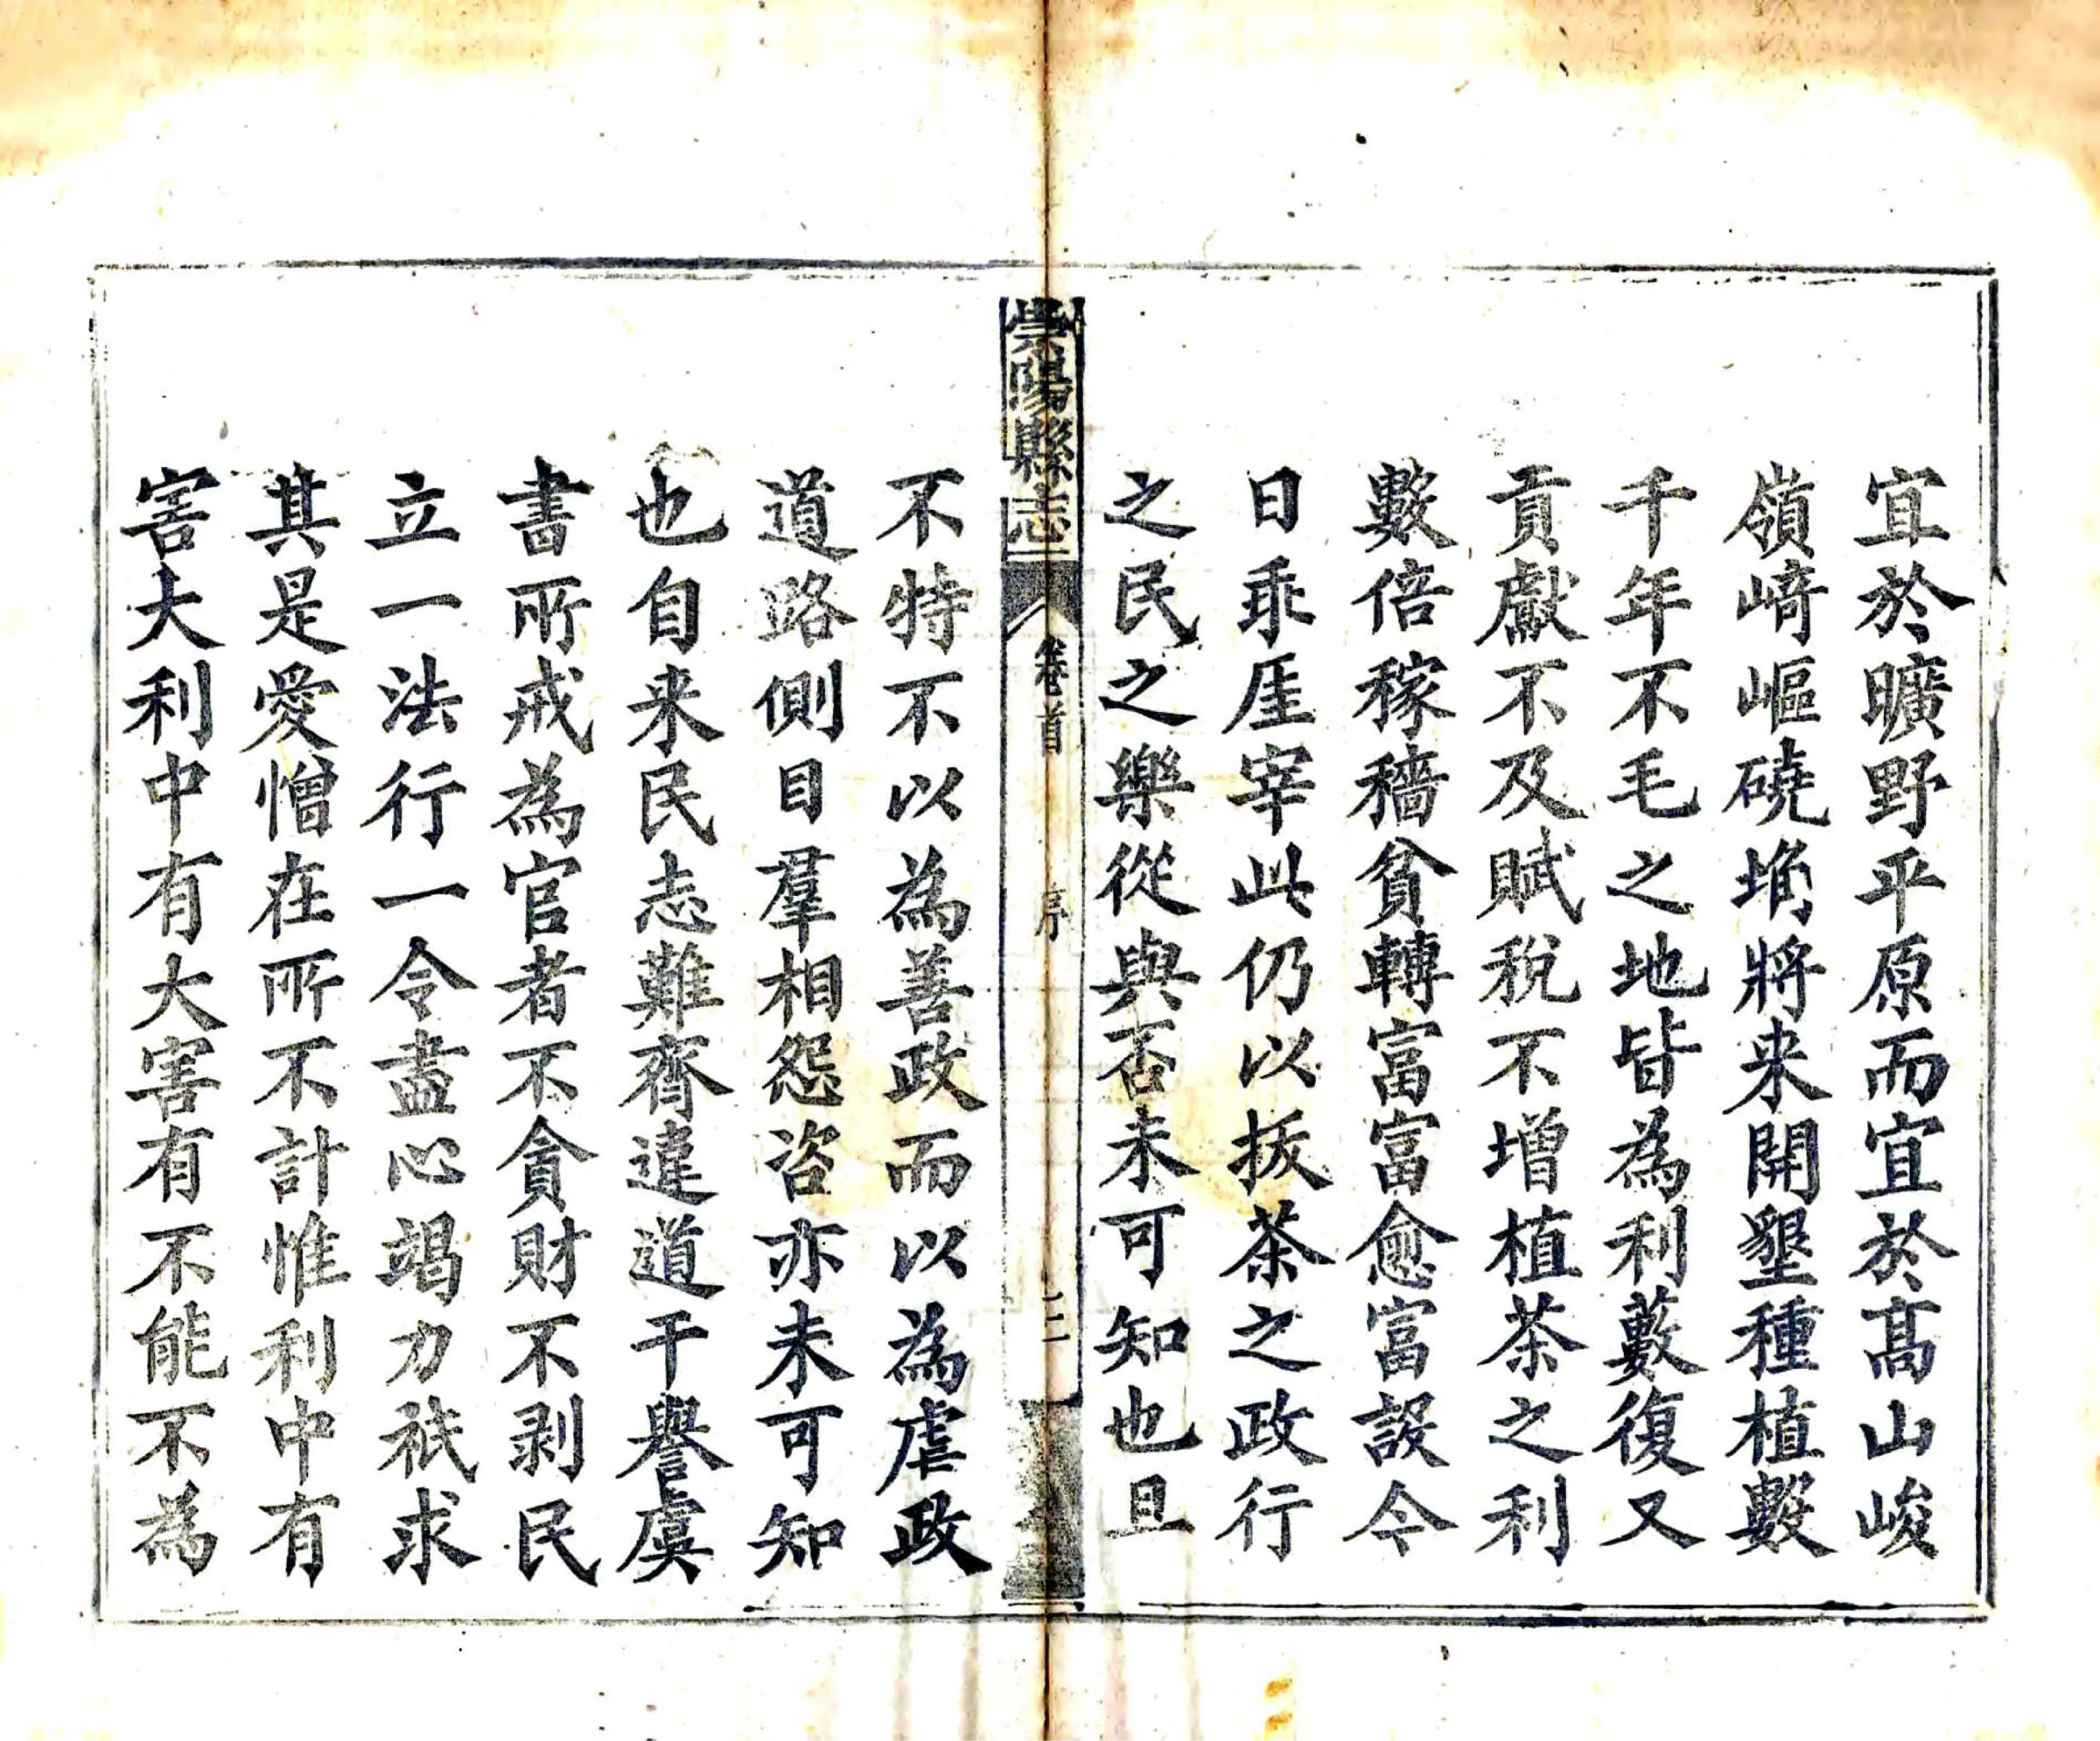 宜於曠野平原而宜於髙山峻
嶺﨑嶇磽埆將来開墾種植數
千年不毛之地皆為利藪復又
貢獻不及賦稅不增植茶之利
數倍稼穡貧轉富富愈富設今
日乖厓宰此仍以拔茶之政行
之民之樂從與否未可知也且
崇陽縣志
卷首
序
二
不特不以為善政而以為虐政
道路側目羣相怨咨亦未可知
也自来民志難齊違道干譽虞
書所戒為官者不貪財不剥民
立一法行一令盡心竭力祇求
其是愛憎在所不計惟利中有
害大利中有大害有不能不為